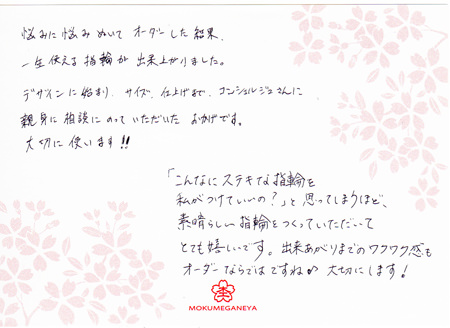 悩みに悩みぬいてオーダーした結果、
一生使える指輪が出来上がりました。
デザインに始まり、サイズ、仕上げまで、コンシェルジュさんに
親身に相談にのっていただいた おかげです。
大切に使います!!
「こんなにステキな指輪を
私がつけていいの?」と思ってしまうほど、
素晴らしい指輪をつくっていただいて
とても嬉しいです。出来あがりまでのワクワク感も
オーダーならではですね♪ 大切にします!
MOKUMEGANEYA